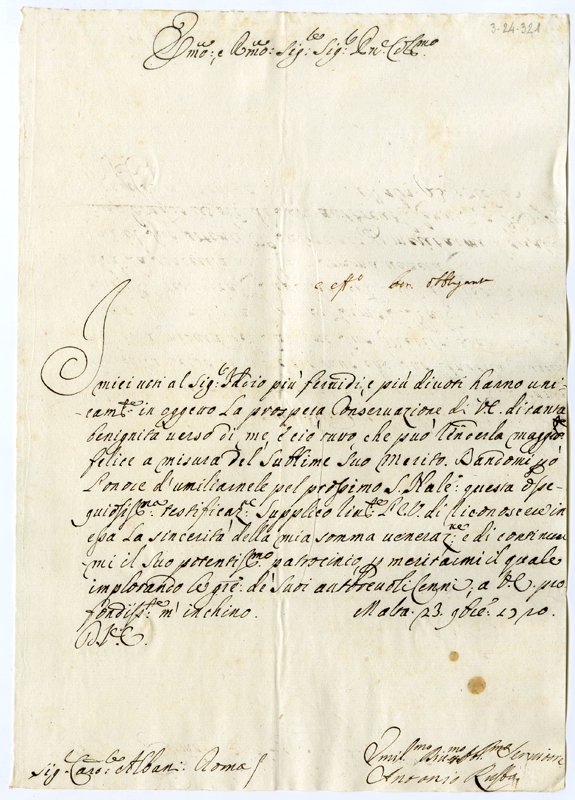 3-24-321
Emo: e Rmo: Sig:re Sig:re Pne: Col:mo
e affo ben obbligante
I miei voti al Sig:re Iddio più feruidi, e più diuoti hanno uni-
-cam:te in oggetto la prospera Conseruazione di V.E. di tanta
benignità verso di me, e ciò tutto, che può renderla maggior.te
felice a misura del sublime suo Merito. Dandomi però
l'onore d'umiliarnele pel prossimo S. Nale: questa osse-
quiosis:ma testificaz:e supplico l'E.V. di riconoscere in
essa la sincerità della mia somma veneraz:ne e di continuar
mi il suo potentis:mo patrocinio, p meritarmi il quale
implorando le gře: de' suoi autoreuoli Cenni, a V.E. pro
fondiss:te m'inchino. Malta 23 9bre: 1710.
D.V.E.
Sig:r Card:le Albani: Roma
Umil:mo Diuot:mo Obl:mo Seruitore
Antonio